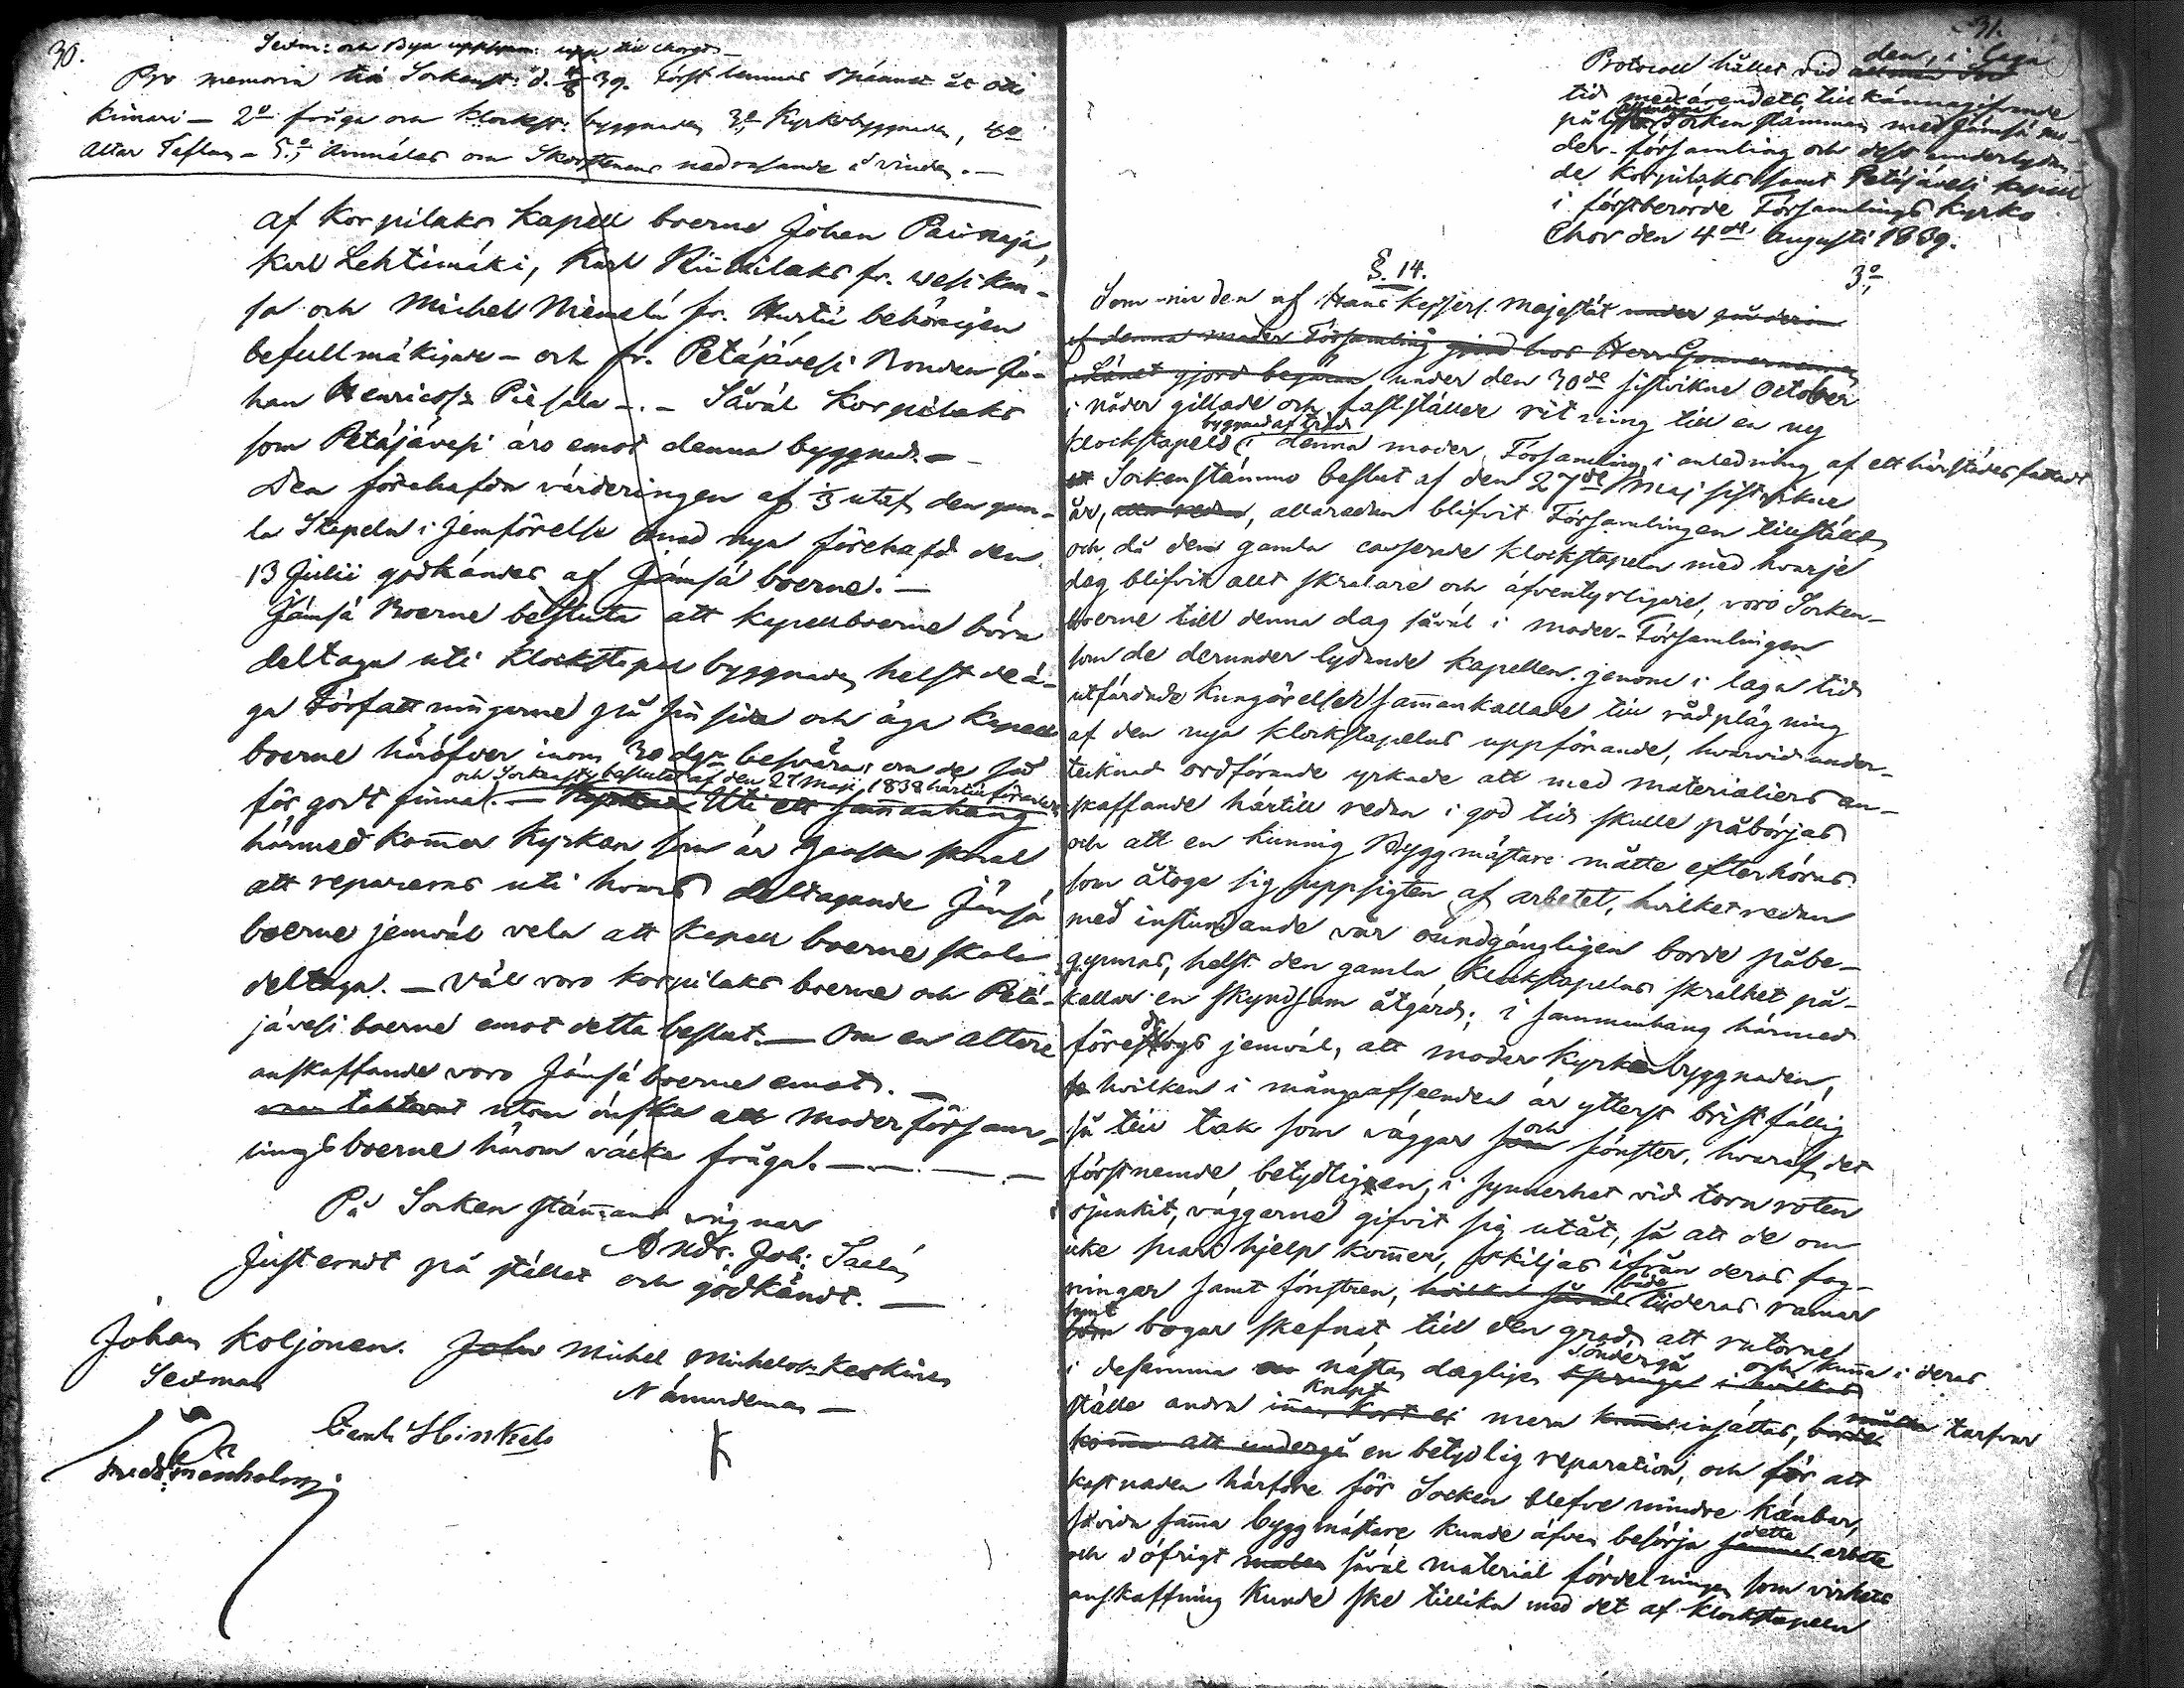 30.
Sexm: och Byn till chorgos-
Pro memoria till Sockenst: d. 4/8 39. Först lemnas spannet åt
Kinari - 2o fråga om Klockst: byggnaden 3o, Kyrkobyggnaden, 4o
Altar Taflan - 5o, Anmälas om Skorstenens nedrasande å vinden. -
af Korpilaks Kapell boerne Johan Pairnaja,
Karl Lehtimäki, Karl Kiiskilaks fr. Wesikan-
sa och Michel Niemelä fr. Hurtii behörigen
befullmäktigade - och fr. Petäjävesi Bonden Jo-
han Henricsson Piesala -.- Såväl Korpilaks
som Petäjävesi äro emot denna byggnad. -
Den förehafda värderingen af 1/3 utaf den gam-
la Stapeln i jemförelse med nya förehafd den
13 Julii godkändes af Jämsä boerne. -
Jämsä Boerne besluta att Kapellboerne böra
deltaga uti Klockstapel byggnaden helst de ä-
ga Författningarne på sin sida och äga Kapell
boerne häröfver inom 30 dgr besvära om de så
och Sockenst. beslutet af den 27 Maji 1838 härtill föranleder
för godt finna. - Uti ett sammanhang
härmed kommer Kyrkan som är ganska skral
att repareras uti hvars deltagande Jämsä
boerne jemväl vela att Kapell boerne skola
deltaga. - Väl voro Korpilaks boerne och Petä-
jävesi boerne emot detta beslut. - Om en altare
anskaffande voro Jämsä boerne emot. -
utan önska att moderförsam-
lings boerne härom väcka fråga. -
På Sockenstämmans vägnar
Andr: Joh: Saelan
Justeradt på stället och godkändt. -
Johan Koljonen. Michel Michelss: Keskinen
Sexman Nämndeman -
Hinkkals
K
31.
Protocoll hållet vid allmän Soc den, i laga
tid med ärendets tillkännagifvande
pålyste allmänna Sockenstämman med Jämsä mo-
der-församling och dess underlydan-
de Korpilaks samt Petäjävesi Kapell
i förstberörde Församlings Kyrko
Chor den 4de Augusti 1839.
§. 14. 3o
Som nu den af Hans Kejserl. Majestät under
af denna moder Församling gjord hos Herr Gouverneuren
i Länet gjord begäran under den 30de sistvikne October
i nåder gillade och fastställde ritning till en ny
klockstapels byggnad af träd i denna moder Församling, i anledning af ett härstädes fattadt
ett Sockenstämmo beslut af den 27de Maj sistvikne
år, alla redan, allaredan blifvit Församlingen tillställd
och då den gamla casserade klockstapeln med hvarje
dag blifvit allt skralare och äfventyrligare, voro Socken-
boerne till denna dag såväl i moder-Församlingen
som de derunder lydande kapellen, genom i laga tid
utfärdade kungörelser sammankallade till rådplägning
af den nya klockstapelns uppförande, hvarvid under-
tecknad ordförande yrkade att med materialiers an-
skaffande härtill redan i god tid skulle påbörjas
och att en kunnig Byggmästare måtte efterhöras
som åtoge sig uppsigten af arbetet, hvilket redan
med instundande vår oundgängligen borde påbe-
gynnas, helst den gamla klockstapelns skralhet på-
kallar en skyndsam åtgärd; i sammanhang härmed
föreslogs jemväl, att moder Kyrkobyggnaden,
hvilken i många afseenden är ytterst bristfällig
så till tak som väggar som och fönster, hvaraf det
förstnemde betydligen, i synnerhet vid torn roten
sjunkit, väggarne gifvit sig utåt, så att de om
icke snar hjelp kommer, skiljas ifrån deras fog-
ningar samt fönstren, hvilka såväl både till deras ramar
som samt bogar skefnat till den grad, att rutorne
i desamma nästan dagligen springa i hvilkas söndergå och kunna i deras
ställe andra knapt mera insättas, borde måtte tarfvar
komma att undergå en betydlig reparation, och för att
kostnaden härföre för Socken blefve mindre känbar,
såvida samma byggmästare kunde äfven besörja samma detta arbete
och i öfrigt såväl material fördelningen som virkets
anskaffning kunde ske tillika med det af klockstapeln